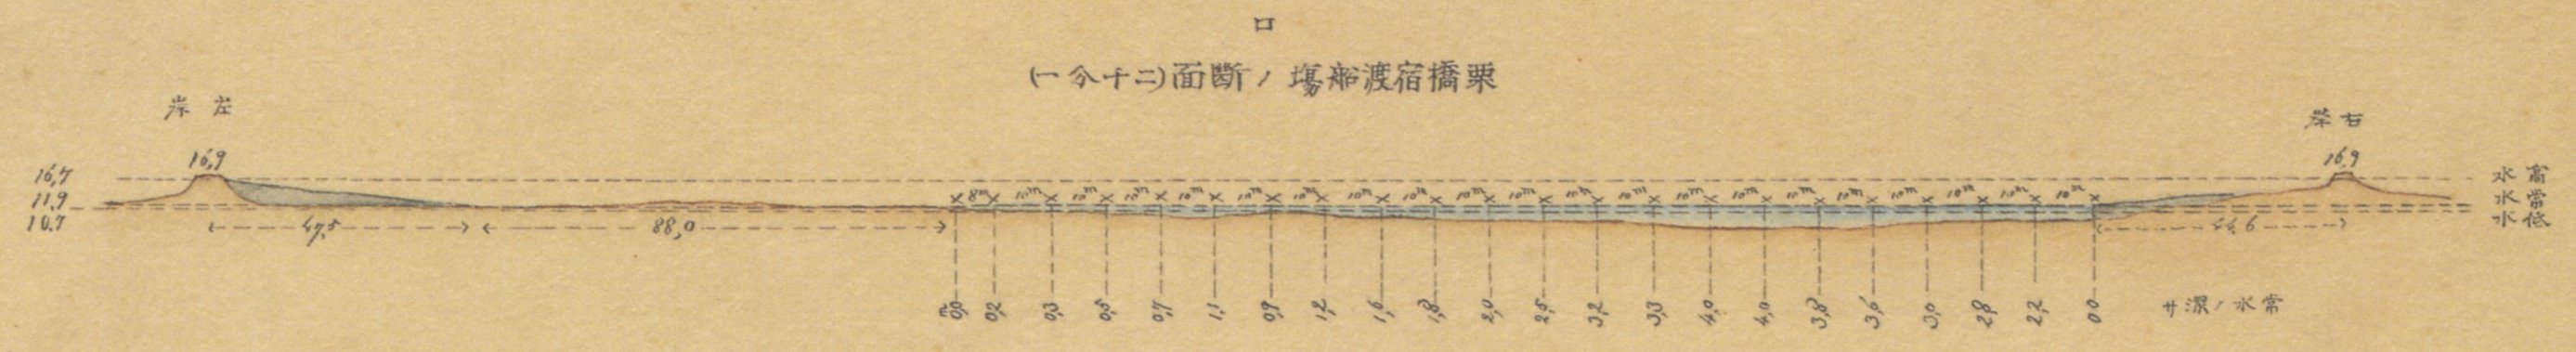 ロ
栗橋宿渡船塲ノ斷面(二千分一)
左岸
右岸
16,9
16,9
16,7
高水
11,9
常水
10,7
低水
8m 10m 10m 10m 10m 10m 10m 10m 10m 10m 10m 10m 10m 10m 10m 10m 10m 10m 10m 10m 10m
47,5
88,0
m0,0 0,2 0,3 0,5 0,7 1,1 0,9 1,2 1,6 1,8 2,0 2,5 3,2 3,3 4,0 4,0 3,8 3,6 3,0 2,8 2,2 0,0
常水ノ深サ